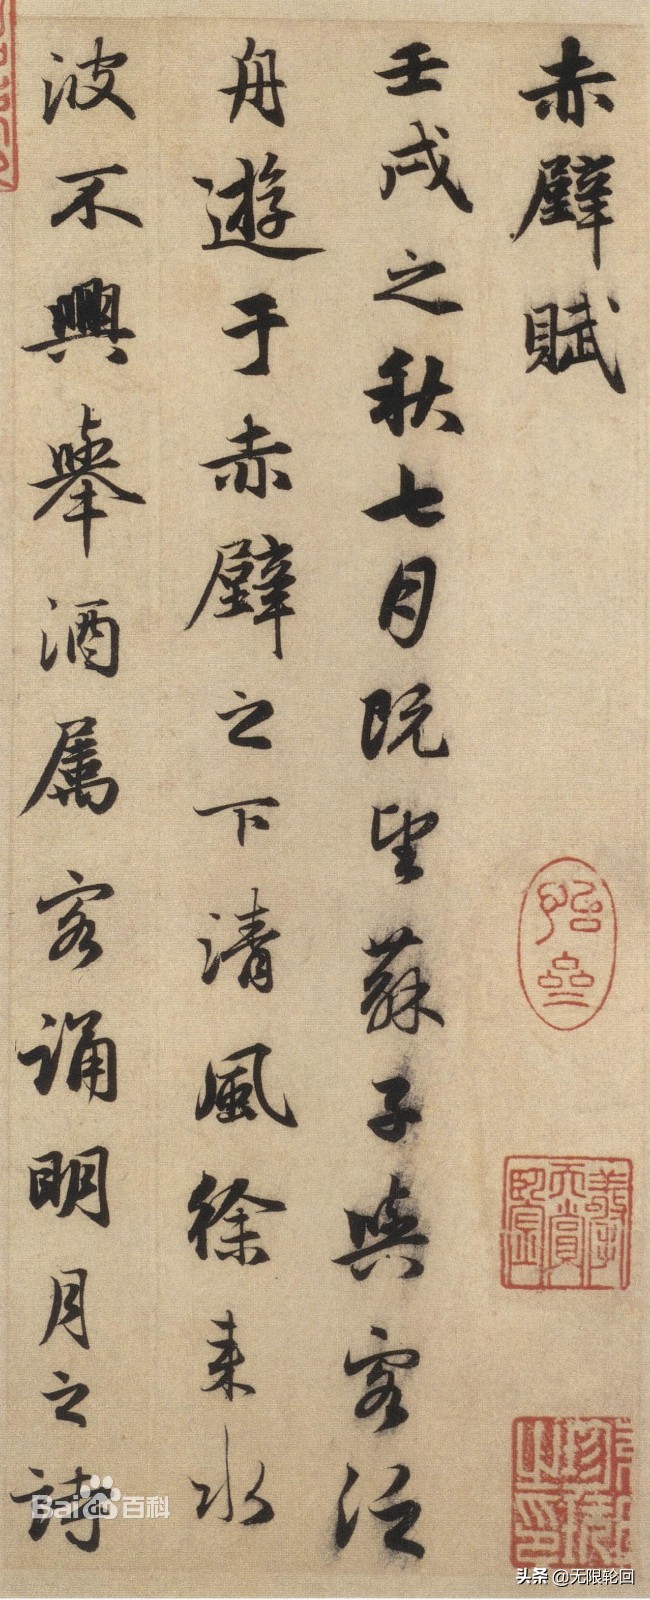 赤壁賦
壬戌之秋七月既望蘇子與客泛
舟遊于赤壁之下清風徐来水
波不興舉酒属客誦明月之詩
Bai百科
头条 @无限轮回